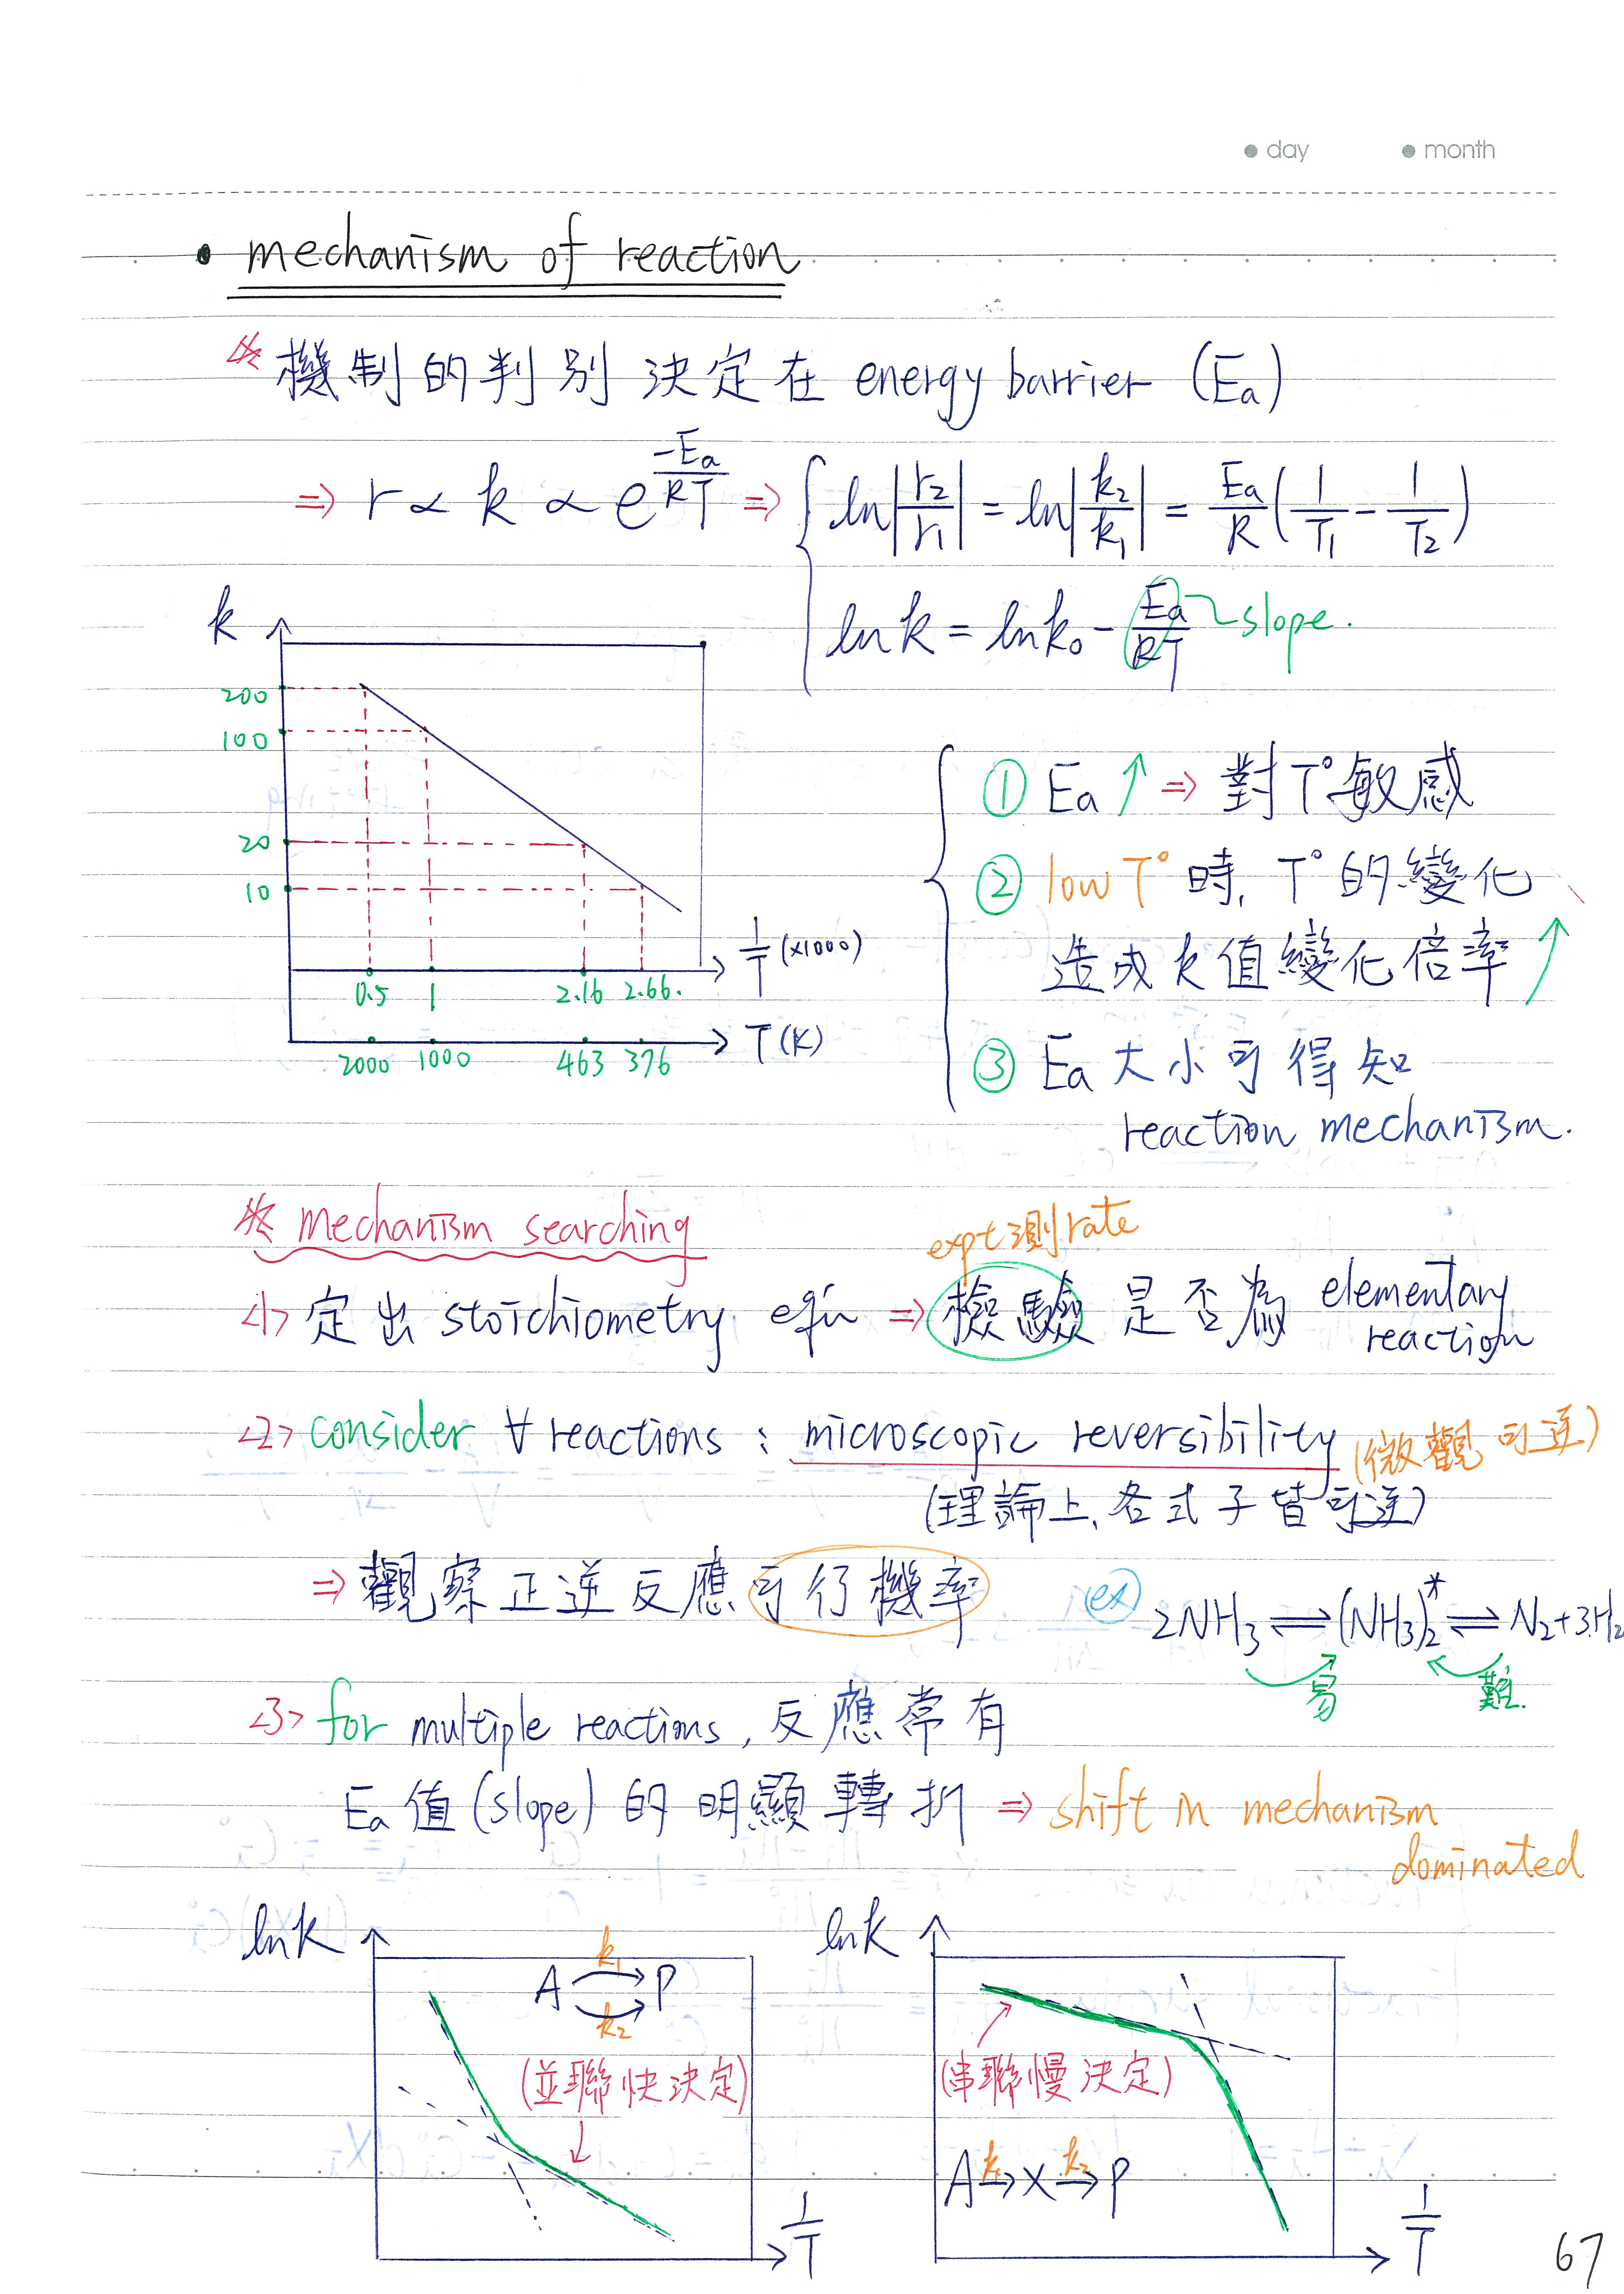 day month
• mechanism of reaction
※ 機制的判別決定在 energy barrier (Ea)
⇒ r ∝ k ∝ e^(-Ea/RT) ⇒ { ln|r₂/r₁| = ln|k₂/k₁| = Ea/R (1/T₁ - 1/T₂)
ln k = ln k₀ - Ea/RT ~ slope.
k
200
100
20
10
0.5 1 2.16 2.66. 1/T (×1000)
2000 1000 463 376 T(K)
① Ea ↑ ⇒ 對 T° 敏感
② low T° 時, T° 的變化
造成 k 值變化倍率 ↑
③ Ea 大小可得知
reaction mechanism.
※ mechanism searching
expt 測 rate
<1> 定出 stoichiometry eq'n ⇒ 檢驗是否為 elementary
reaction
<2> consider ∀ reactions : microscopic reversibility (微觀可逆)
(理論上, 各式子皆可逆)
⇒ 觀察正逆反應可行機率 ex 2NH₃ ⇌ (NH₃)₂* ⇌ N₂+3H₂
易 難.
<3> for multiple reactions, 反應常有
Ea 值 (slope) 的明顯轉折 ⇒ shift in mechanism
dominated
ln k
k₁
A P
k₂
(並聯快決定)
1/T
ln k
(串聯慢決定)
A k₁→ X k₂→ P
1/T
67